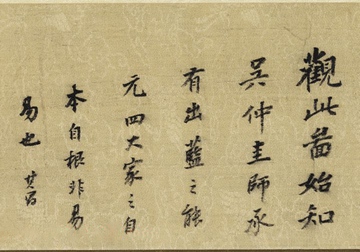 觀此啚始知
吳仲圭師承
有出藍之能
元四大家之自
本自根非易
易也 其昌